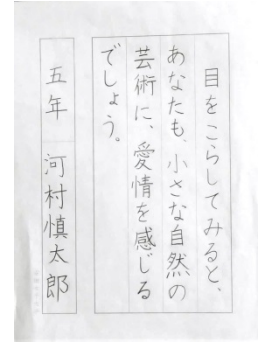 目をこらしてみると、
あなたも、小さな自然の
芸術に、愛情を感じる
でしょう。
五年 河村慎太郎